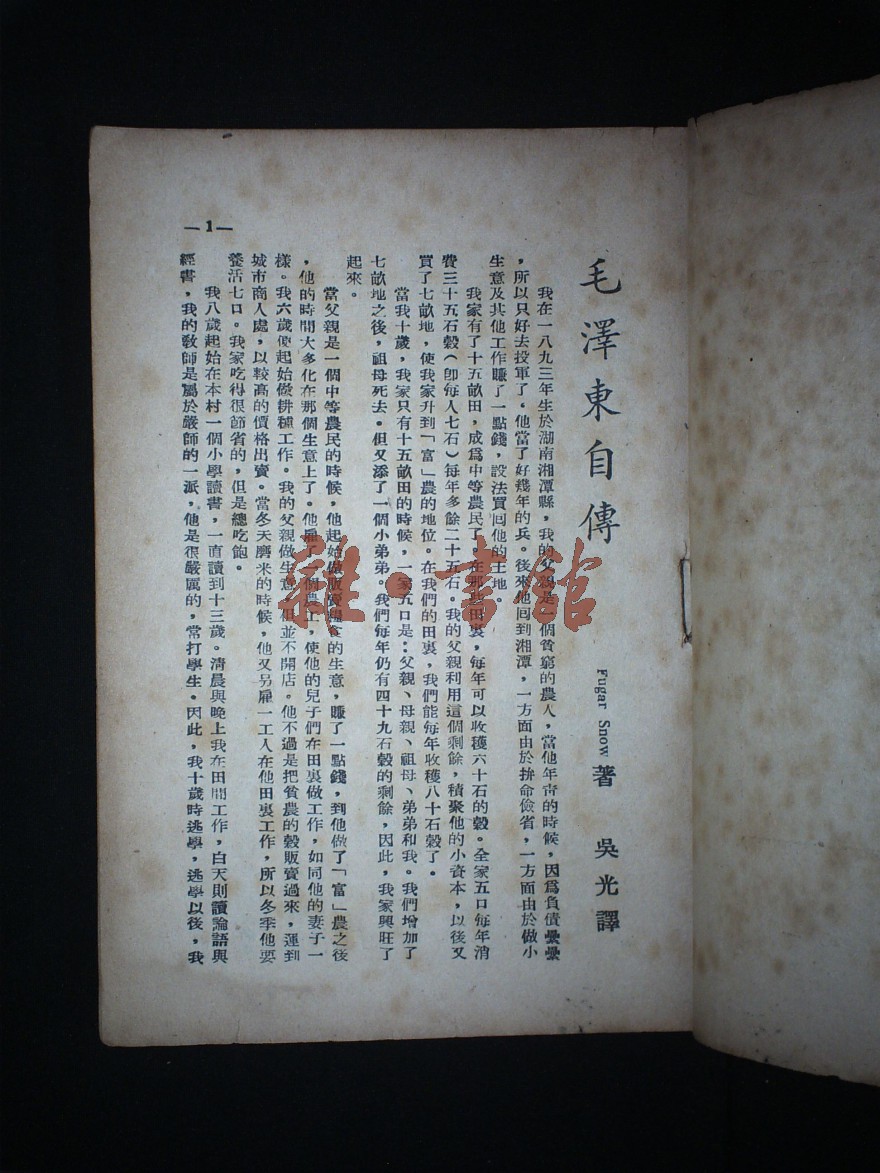 毛澤東自傳
Fugar Snow 著 吳光譯
我在一八九三年生於湖南湘潭縣，我的父親是一個貧窮的農人，當他年靑的時候，因爲負債纍纍
，所以只好去投軍了。他當了好幾年的兵。後來他囘到湘潭，一方面由於拚命儉省，一方面由於做小
生意及其他工作賺了一點錢，設法買囘他的土地。
我家有了十五畝田，成爲中等農民了。在那些田裏，每年可以收穫六十石的穀。全家五口每年消
費三十五石穀（卽每人七石）每年多餘二十五石。我的父親利用這個剩餘，積聚他的小資本，以後又
買了七畝地，使我家升到「富」農的地位。在我們的田裏，我們能每年收穫八十石穀了。
當我十歲，我家只有十五畝田的時候，一家五口是：父親、母親、祖母、弟弟和我。我們增加了
七畝地之後，祖母死去。但又添了一個小弟弟。我們每年仍有四十九石穀的剩餘，因此，我家興旺了
起來。
當父親是一個中等農民的時候，他起始做販賣糧食的生意，賺了一點錢，到他做了「富」農之後
，他的時間大多化在那個生意上了。他雇了一個農工，使他的兒子們在田裏做工作，如同他的妻子一
樣。我六歲便起始做耕種工作。我的父親做生意，但並不開店。他不過是把貧農的穀販賣過來，運到
城市商人處，以較高的價格出賣。當冬天磨米的時候，他又另雇一工人在他田裏工作，所以冬季他要
養活七口。我家吃得很節省的，但是總吃飽。
我八歲起始在本村一個小學讀書，一直讀到十三歲。清晨與晚上我在田間工作，白天則讀論語與
經書，我的敎師是屬於嚴師的一派，他是很嚴厲的，常打學生。因此，我十歲時逃學，逃學以後，我
—1—
雜·書館